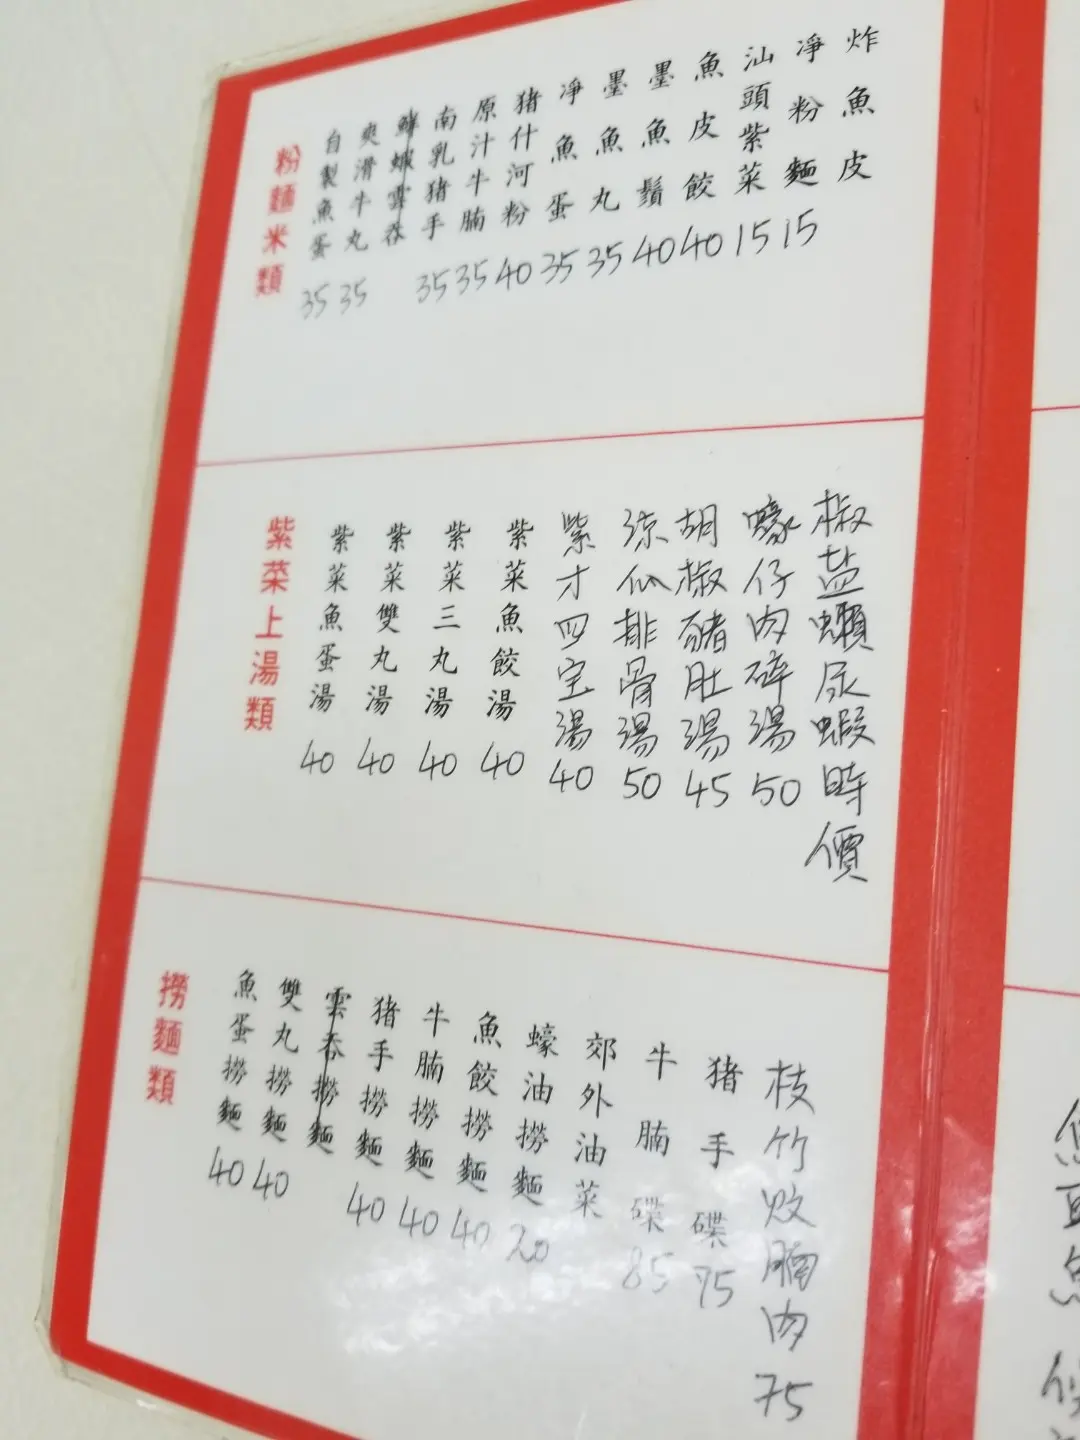 粉麵米類
自製魚蛋 35
爽滑牛丸 35
鮮蝦雲吞
南乳猪手 35
原汁牛腩 35
猪什河粉 40
凈魚蛋 35
墨魚丸 35
墨魚鬚 40
魚皮餃 40
汕頭紫菜 15
凈粉麵 15
炸魚皮
紫菜上湯類
紫菜魚蛋湯 40
紫菜雙丸湯 40
紫菜三丸湯 40
紫菜魚餃湯 40
紫才四宝湯 40
涼瓜排骨湯 50
胡椒豬肚湯 45
蠔仔肉碎湯 50
椒盐瀨尿蝦時價
撈麵類
魚蛋撈麵 40
雙丸撈麵 40
雲吞撈麵
猪手撈麵 40
牛腩撈麵 40
魚餃撈麵 40
蠔油撈麵 20
郊外油菜
牛腩碟 85
猪手碟 75
枝竹炆腩肉 75